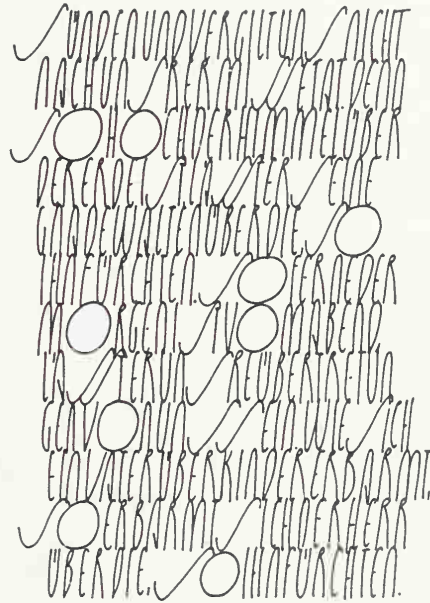 SÜNDEN UND VERGILT UNS NICHT
NACH UNSRER MISSETAT. DENN
SO HOCH DER HIMMEL ÜBER
DER ERDE IST, LÄSST ER SEINE
GNADE WALTEN ÜBER DIE, SO
IHN FÜRCHTEN. SO FERNE DER
MORGEN IST VOM ABEND
LÄSST ER UNSRE ÜBERTRETUN
GEN VON UNS SEIN. WIE SICH
EIN VATER ÜBER KINDER ERBARMT
SO ERBARMT SICH DER HERR
ÜBER DIE, SO IHN FÜRCHTEN.